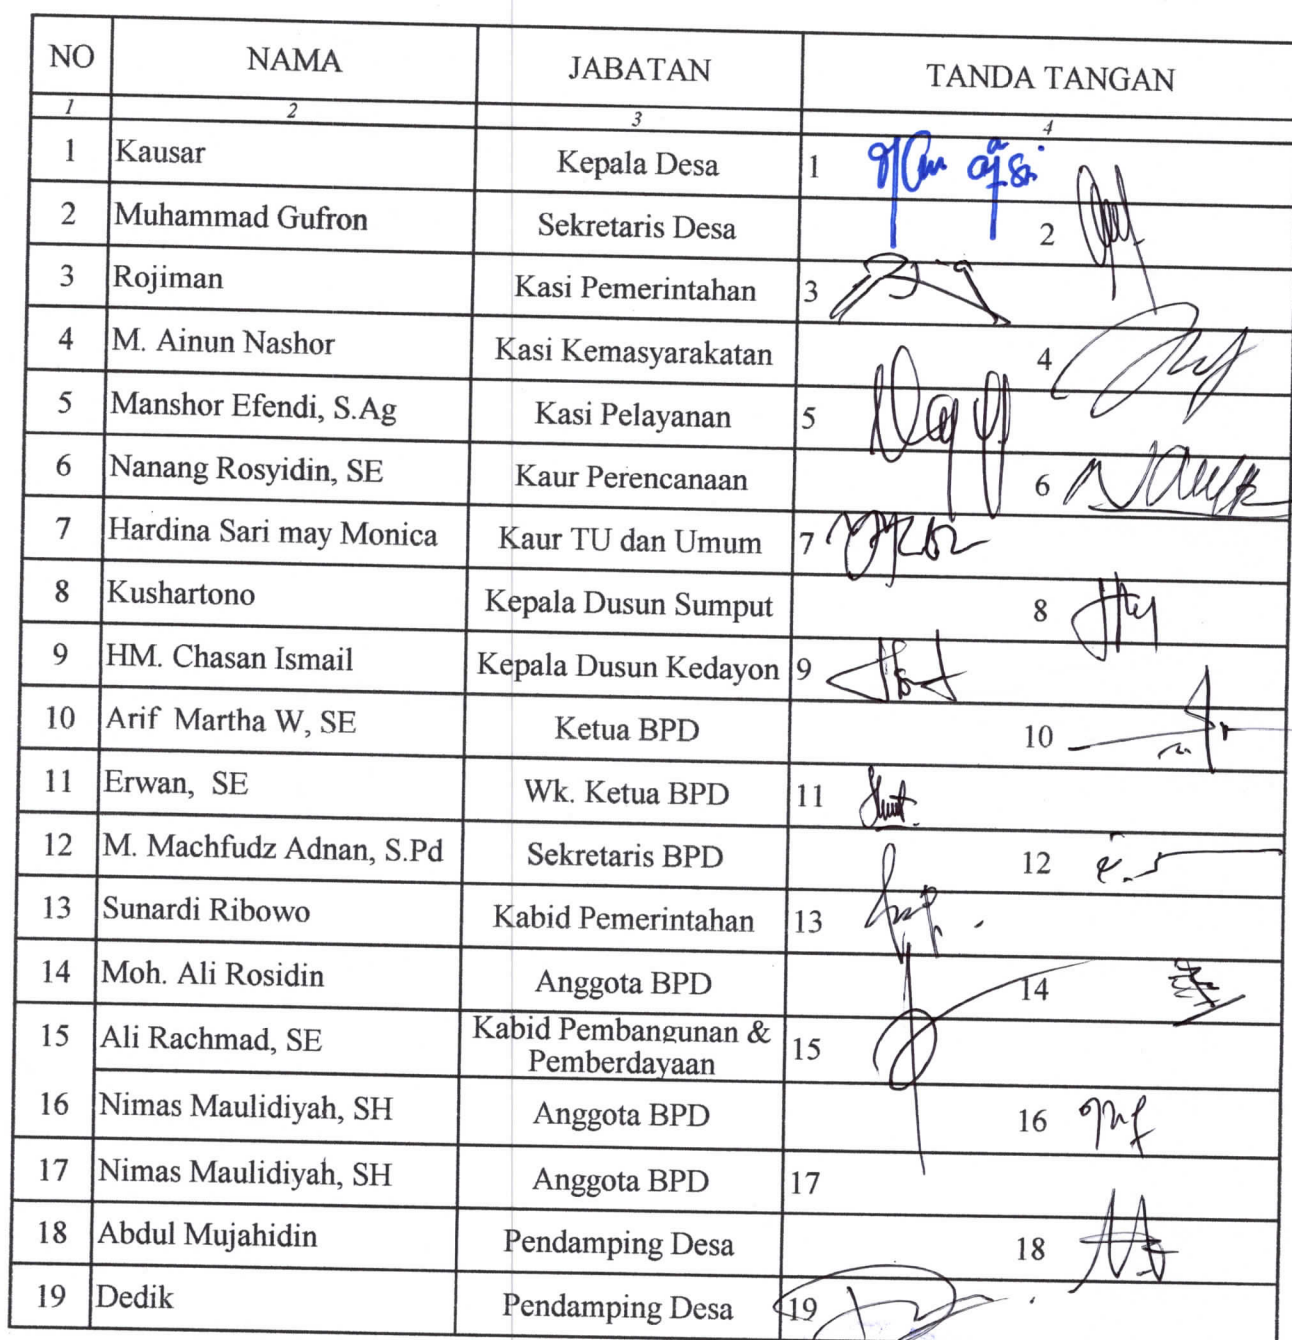 NO NAMA JABATAN TANDA TANGAN
1 2 3 4
1 Kausar Kepala Desa 1
2 Muhammad Gufron Sekretaris Desa 2
3 Rojiman Kasi Pemerintahan 3
4 M. Ainun Nashor Kasi Kemasyarakatan 4
5 Manshor Efendi, S.Ag Kasi Pelayanan 5
6 Nanang Rosyidin, SE Kaur Perencanaan 6
7 Hardina Sari may Monica Kaur TU dan Umum 7
8 Kushartono Kepala Dusun Sumput 8
9 HM. Chasan Ismail Kepala Dusun Kedayon 9
10 Arif Martha W, SE Ketua BPD 10
11 Erwan, SE Wk. Ketua BPD 11
12 M. Machfudz Adnan, S.Pd Sekretaris BPD 12
13 Sunardi Ribowo Kabid Pemerintahan 13
14 Moh. Ali Rosidin Anggota BPD 14
15 Ali Rachmad, SE Kabid Pembangunan & 15
Pemberdayaan
16 Nimas Maulidiyah, SH Anggota BPD 16
17 Nimas Maulidiyah, SH Anggota BPD 17
18 Abdul Mujahidin Pendamping Desa 18
19 Dedik Pendamping Desa 19